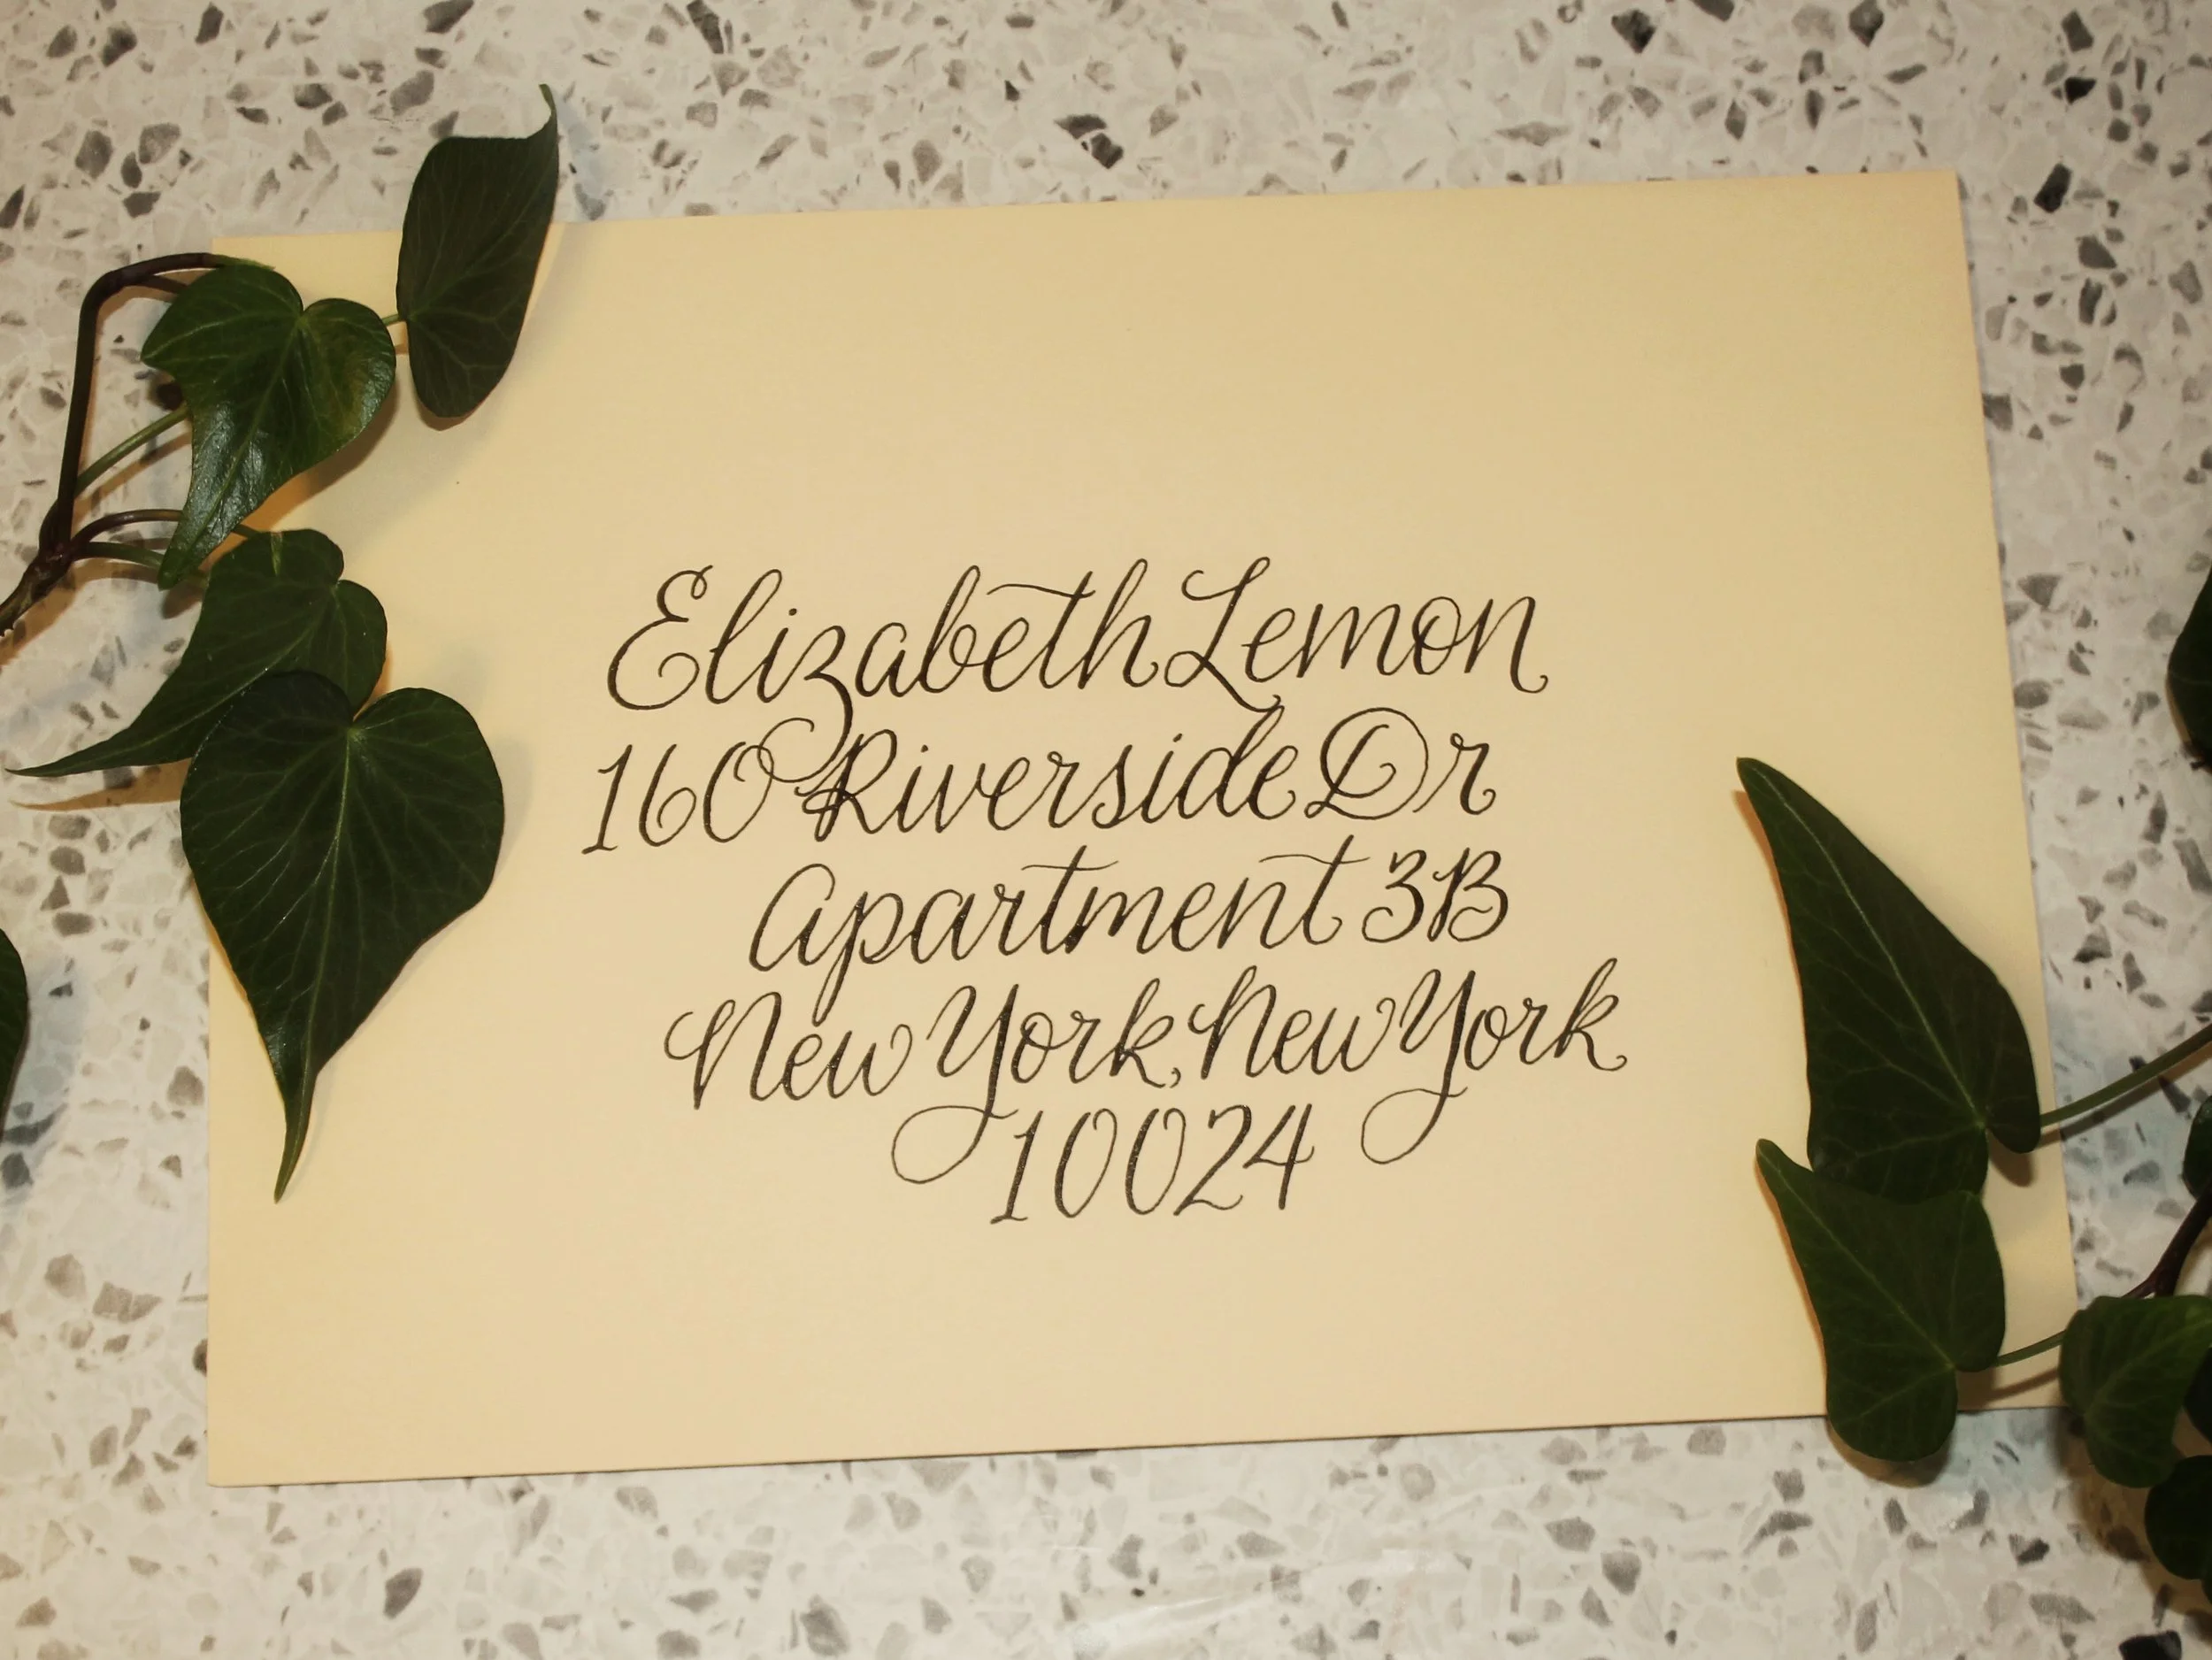 Elizabeth Lemon
160 Riverside Dr
Apartment 3B
New York, New York
10024